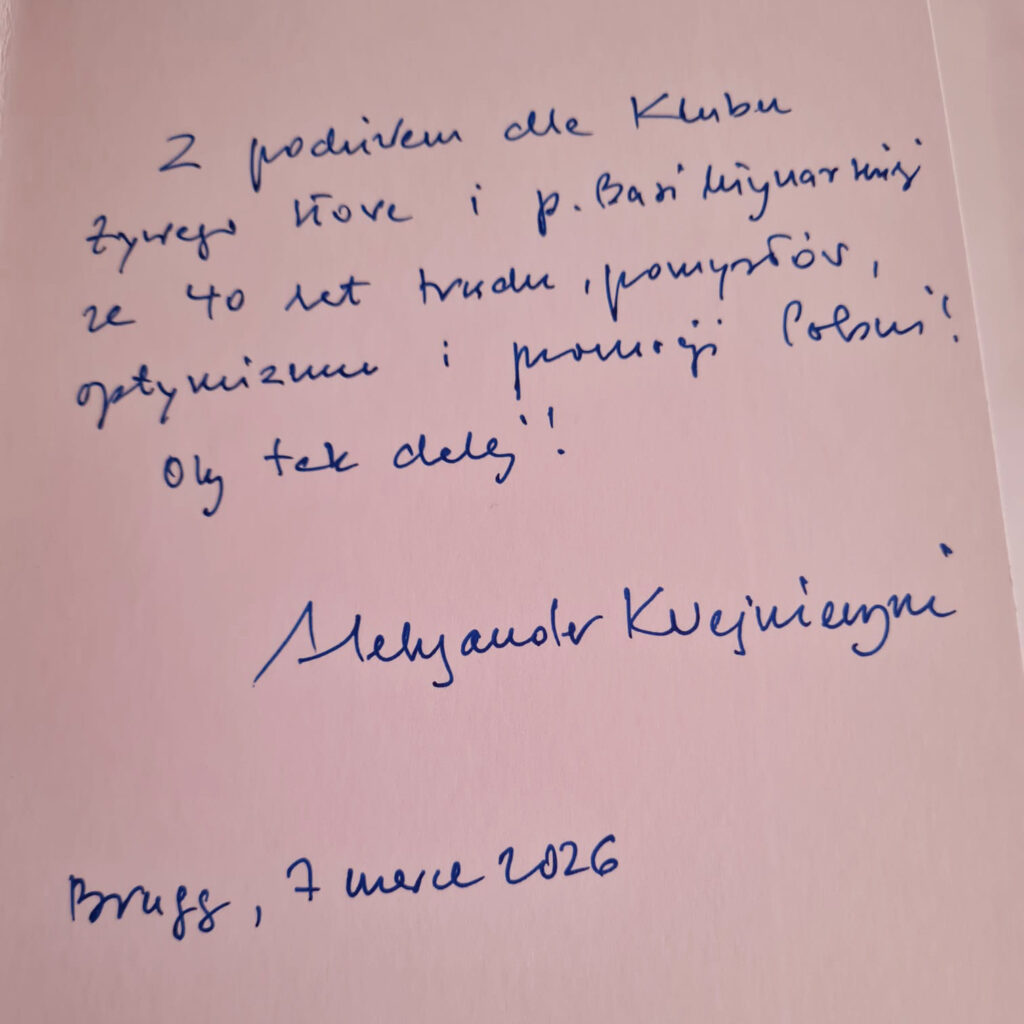 Z podziwem dla Klubu
Żywego Słowa i p. Basi Młynarskiej
za 40 lat trudu, pomysłów,
optymizmu i promocji Polski!
Oby tak dalej!
Aleksander Kwaśniewski
Brugg, 7 marca 2026